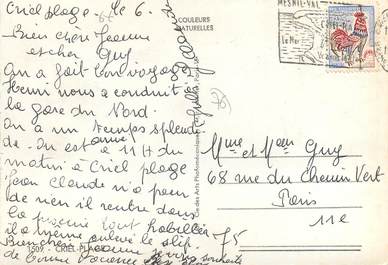 Criel plage le 6.
Bien chère Jeanne
et cher Guy
On a fait bon voyage
Henri nous a conduit à
la gare du Nord.
On a un temps splendi
de. On est arrivé à 11 H du
matin à Criel plage
Jean Claude n'a peur
de rien il rentre dans
la piscine tout habillé
il a même enlevé le slip.
COULEURS
NATURELLES
1509 - CRIEL-PLAGE
MESNIL-VAL
CRIEL-PLAGE
Mme et Mon Guy
68 rue du Chemin Vert
Paris
11e
75